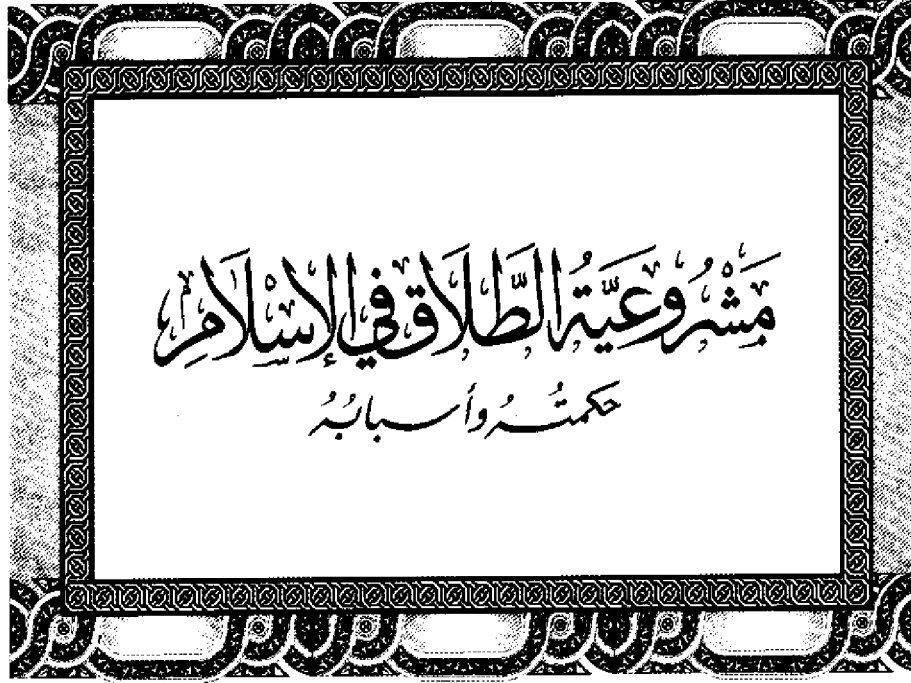 مَشْرُوعِيَّةُ الطَّلَاقِ فِي الْإِسْلَامِ
حكمتُهُ وأسبابُهُ